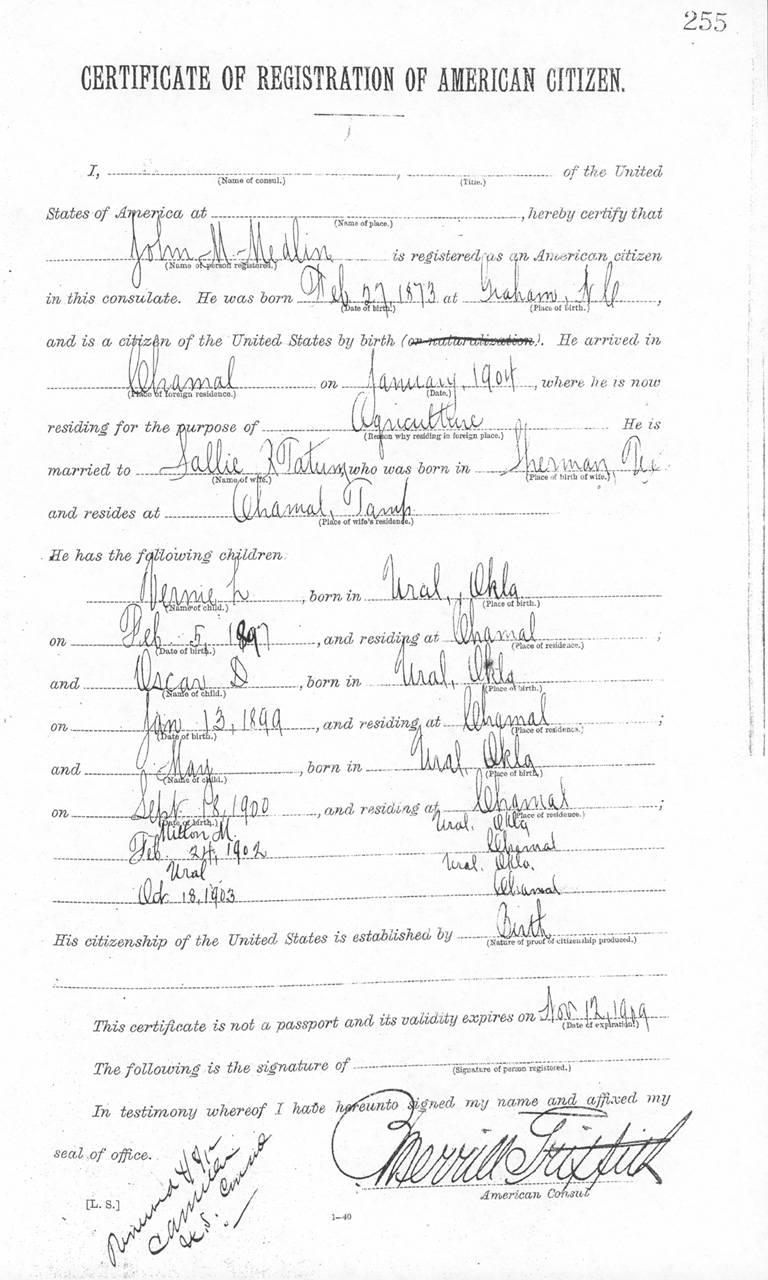 255
CERTIFICATE OF REGISTRATION OF AMERICAN CITIZEN.
I, , of the United
(Name of consul.) (Title.)
States of America at , hereby certify that
(Name of place.)
John M. Medlin is registered as an American citizen
(Name of person registered.)
in this consulate. He was born Feb 27, 1873 at Graham, N C ,
(Date of birth.) (Place of birth.)
and is a citizen of the United States by birth (or naturalization). He arrived in
Chamal on January, 1904 , where he is now
(Place of foreign residence.) (Date.)
residing for the purpose of Agriculture He is
(Reason why residing in foreign place.)
married to Sallie F Tatum who was born in Sherman, Tex
(Name of wife.) (Place of birth of wife.)
and resides at Chamal, Tamp
(Place of wife's residence.)
He has the following children:
Vernie L , born in Ural, Okla
(Name of child.) (Place of birth.)
on Feb 5, 1897 , and residing at Chamal ;
(Date of birth.) (Place of residence.)
and Oscar D , born in Ural, Okla
(Name of child.) (Place of birth.)
on Jan 13, 1899 , and residing at Chamal ;
(Date of birth.) (Place of residence.)
and May , born in Ural Okla
(Name of child.) (Place of birth.)
on Sept 18, 1900 , and residing at Chamal ;
(Date of birth.) (Place of residence.)
Milton M. Ural. Okla
Feb. 24, 1902 Chamal
Ural Ural. Okla.
Oct 18, 1903 Chamal
His citizenship of the United States is established by Birth
(Nature of proof of citizenship produced.)
This certificate is not a passport and its validity expires on Nov 12, 1909
(Date of expiration.)
The following is the signature of
(Signature of person registered.)
In testimony whereof I have hereunto signed my name and affixed my
seal of office. Merrill Griffith
American Consul
[L. S.]
1—40